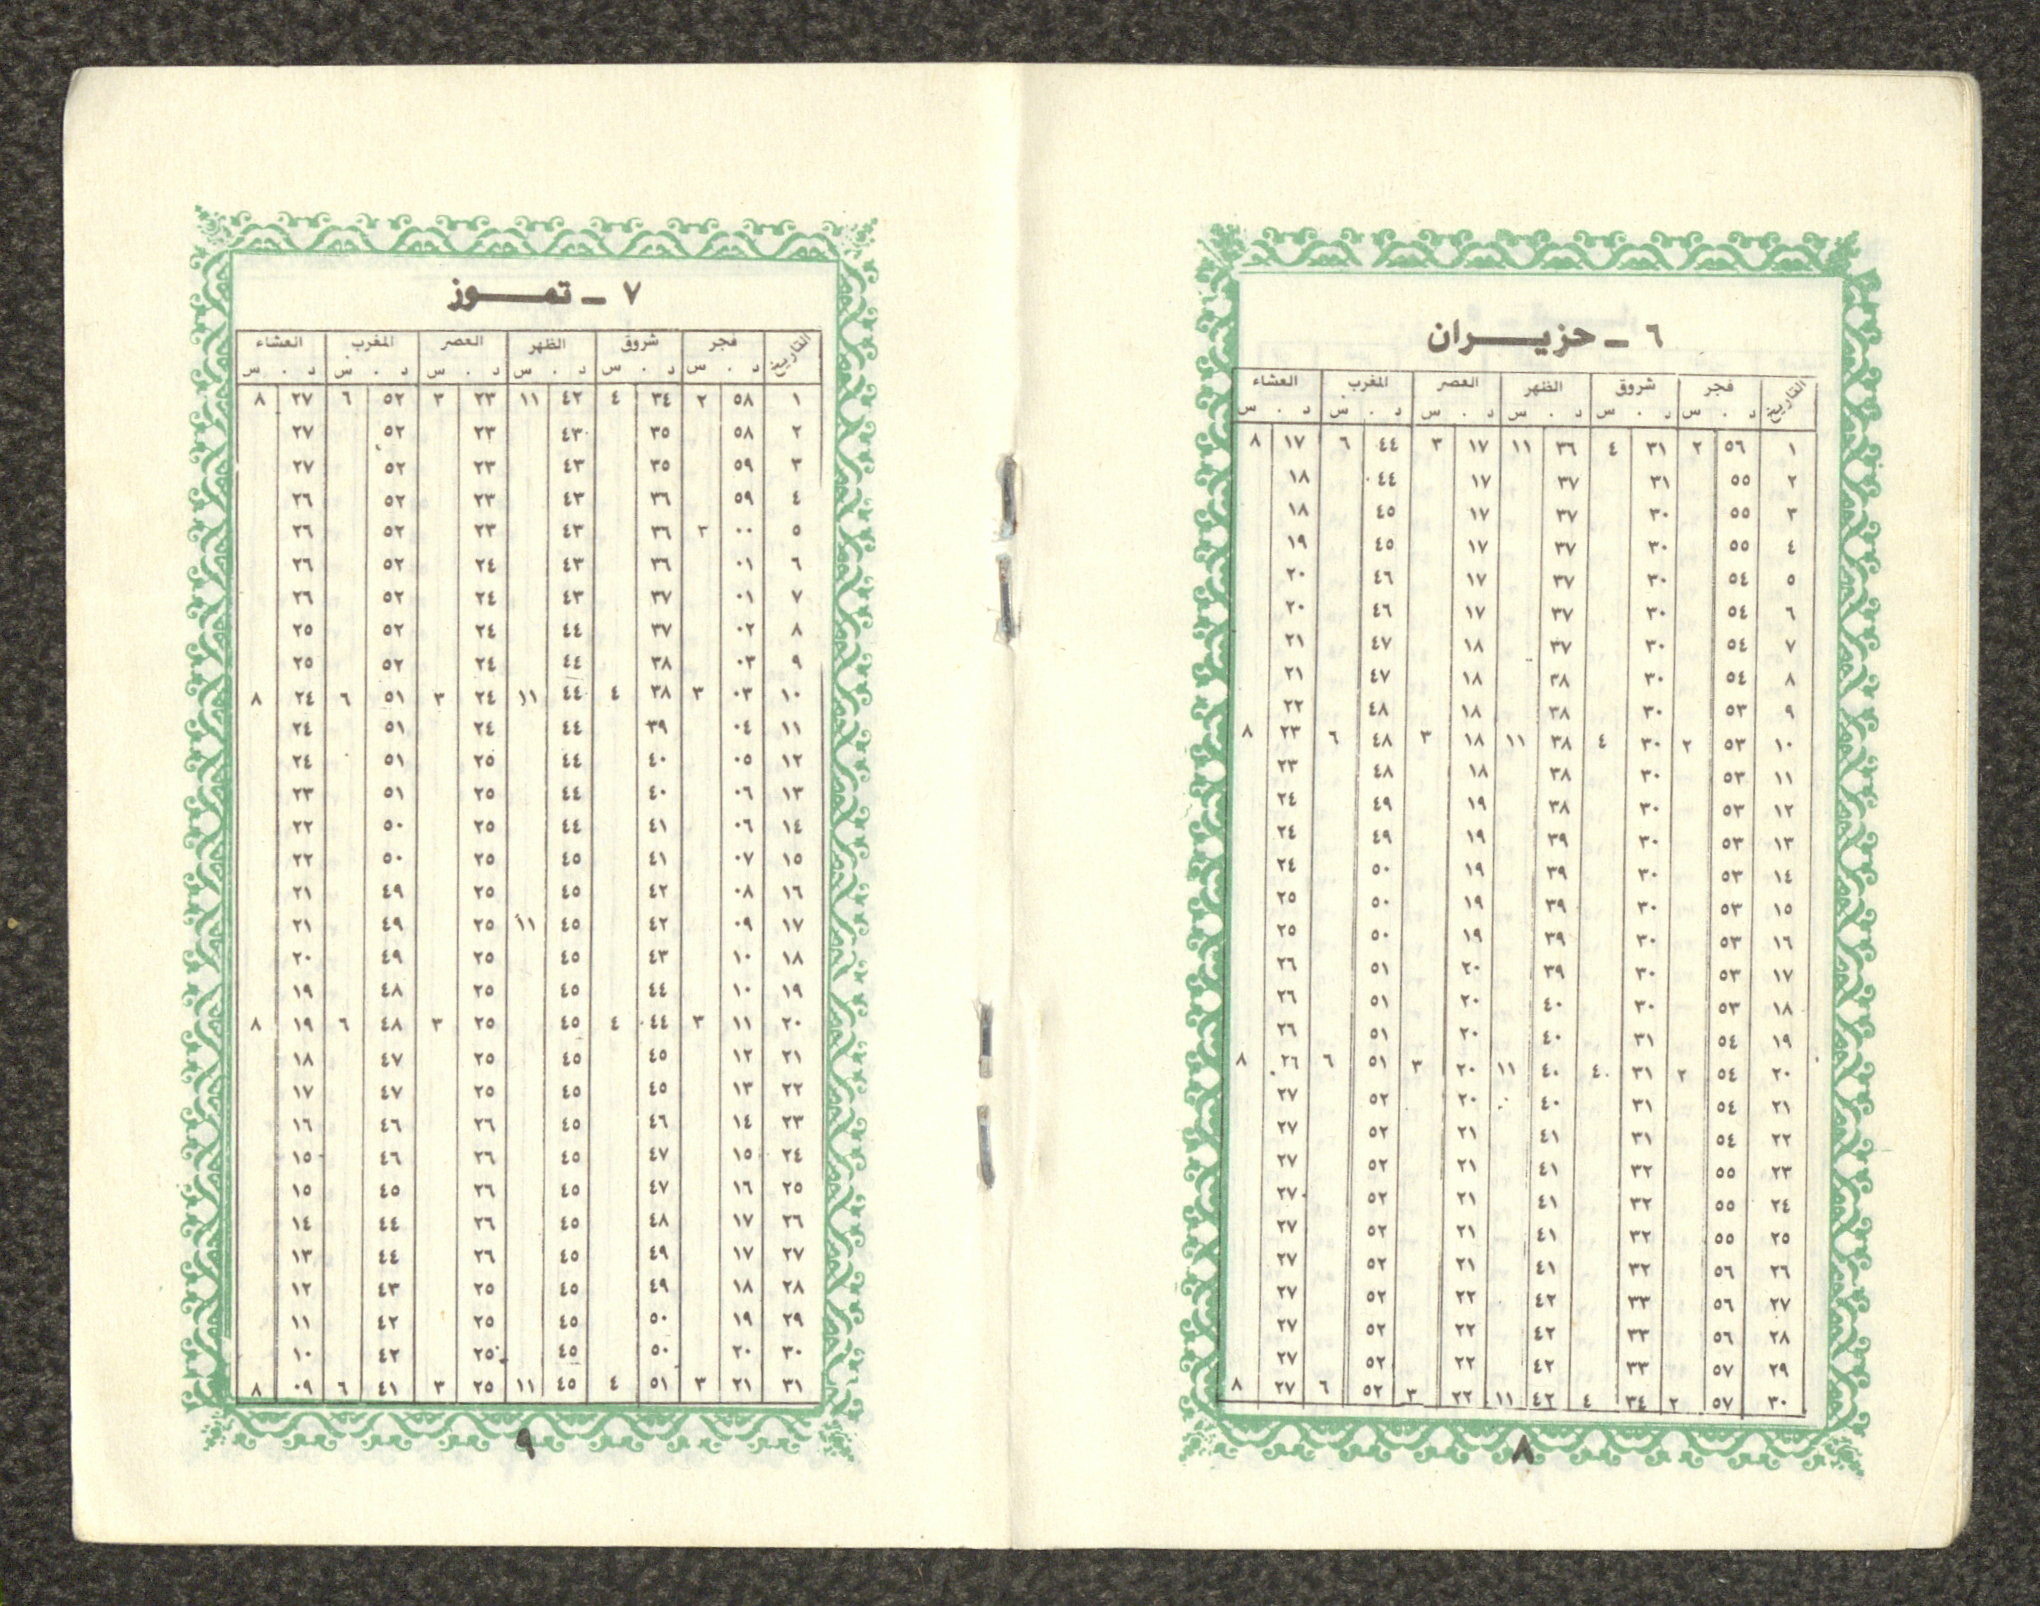 ٦ ـ حزيـــران
التاريخ فجر شروق الظهر العصر المغرب العشاء
د . س د . س د . س د . س د . س د . س
١ ٥٦ ٢ ٣١ ٤ ٣٦ ١١ ١٧ ٣ ٤٤ ٦ ١٧ ٨
٢ ٥٥ ٣١ ٣٧ ١٧ ٤٤ ١٨
٣ ٥٥ ٣٠ ٣٧ ١٧ ٤٥ ١٨
٤ ٥٥ ٣٠ ٣٧ ١٧ ٤٥ ١٩
٥ ٥٤ ٣٠ ٣٧ ١٧ ٤٦ ٢٠
٦ ٥٤ ٣٠ ٣٧ ١٧ ٤٦ ٢٠
٧ ٥٤ ٣٠ ٣٧ ١٨ ٤٧ ٢١
٨ ٥٤ ٣٠ ٣٨ ١٨ ٤٧ ٢١
٩ ٥٣ ٣٠ ٣٨ ١٨ ٤٨ ٢٢
١٠ ٥٣ ٢ ٣٠ ٤ ٣٨ ١١ ١٨ ٣ ٤٨ ٦ ٢٣ ٨
١١ ٥٣ ٣٠ ٣٨ ١٨ ٤٨ ٢٣
١٢ ٥٣ ٣٠ ٣٨ ١٩ ٤٩ ٢٤
١٣ ٥٣ ٣٠ ٣٩ ١٩ ٤٩ ٢٤
١٤ ٥٣ ٣٠ ٣٩ ١٩ ٥٠ ٢٤
١٥ ٥٣ ٣٠ ٣٩ ١٩ ٥٠ ٢٥
١٦ ٥٣ ٣٠ ٣٩ ١٩ ٥٠ ٢٥
١٧ ٥٣ ٣٠ ٣٩ ٢٠ ٥١ ٢٦
١٨ ٥٣ ٣٠ ٤٠ ٢٠ ٥١ ٢٦
١٩ ٥٤ ٣١ ٤٠ ٢٠ ٥١ ٢٦
٢٠ ٥٤ ٢ ٣١ ٤ ٤٠ ١١ ٢٠ ٣ ٥١ ٦ ٢٦ ٨
٢١ ٥٤ ٣١ ٤٠ ٢٠ ٥٢ ٢٧
٢٢ ٥٤ ٣١ ٤١ ٢١ ٥٢ ٢٧
٢٣ ٥٥ ٣٢ ٤١ ٢١ ٥٢ ٢٧
٢٤ ٥٥ ٣٢ ٤١ ٢١ ٥٢ ٢٧
٢٥ ٥٥ ٣٢ ٤١ ٢١ ٥٢ ٢٧
٢٦ ٥٦ ٣٢ ٤١ ٢١ ٥٢ ٢٧
٢٧ ٥٦ ٣٣ ٤٢ ٢٢ ٥٢ ٢٧
٢٨ ٥٦ ٣٣ ٤٢ ٢٢ ٥٢ ٢٧
٢٩ ٥٧ ٣٣ ٤٢ ٢٢ ٥٢ ٢٧
٣٠ ٥٧ ٢ ٣٤ ٤ ٤٢ ١١ ٢٢ ٣ ٥٢ ٦ ٢٧ ٨
٨
٧ ـ تمـــوز
التاريخ فجر شروق الظهر العصر المغرب العشاء
د . س د . س د . س د . س د . س د . س
١ ٥٨ ٢ ٣٤ ٤ ٤٢ ١١ ٢٣ ٣ ٥٢ ٦ ٢٧ ٨
٢ ٥٨ ٣٥ ٤٣ ٢٣ ٥٢ ٢٧
٣ ٥٩ ٣٥ ٤٣ ٢٣ ٥٢ ٢٧
٤ ٥٩ ٣٦ ٤٣ ٢٣ ٥٢ ٢٦
٥ ٠٠ ٣ ٣٦ ٤٣ ٢٣ ٥٢ ٢٦
٦ ٠١ ٣٦ ٤٣ ٢٤ ٥٢ ٢٦
٧ ٠١ ٣٧ ٤٣ ٢٤ ٥٢ ٢٦
٨ ٠٢ ٣٧ ٤٤ ٢٤ ٥٢ ٢٥
٩ ٠٣ ٣٨ ٤٤ ٢٤ ٥٢ ٢٥
١٠ ٠٣ ٣ ٣٨ ٤ ٤٤ ١١ ٢٤ ٣ ٥١ ٦ ٢٤ ٨
١١ ٠٤ ٣٩ ٤٤ ٢٤ ٥١ ٢٤
١٢ ٠٥ ٤٠ ٤٤ ٢٥ ٥١ ٢٤
١٣ ٠٦ ٤٠ ٤٤ ٢٥ ٥١ ٢٣
١٤ ٠٦ ٤١ ٤٤ ٢٥ ٥٠ ٢٢
١٥ ٠٧ ٤١ ٤٥ ٢٥ ٥٠ ٢٢
١٦ ٠٨ ٤٢ ٤٥ ٢٥ ٤٩ ٢١
١٧ ٠٩ ٤٢ ٤٥ ١١ ٢٥ ٤٩ ٢١
١٨ ١٠ ٤٣ ٤٥ ٢٥ ٤٩ ٢٠
١٩ ١٠ ٤٤ ٤٥ ٢٥ ٤٨ ١٩
٢٠ ١١ ٣ ٤٤ ٤ ٤٥ ٢٥ ٣ ٤٨ ٦ ١٩ ٨
٢١ ١٢ ٤٥ ٤٥ ٢٥ ٤٧ ١٨
٢٢ ١٣ ٤٥ ٤٥ ٢٥ ٤٧ ١٧
٢٣ ١٤ ٤٦ ٤٥ ٢٦ ٤٦ ١٦
٢٤ ١٥ ٤٧ ٤٥ ٢٦ ٤٦ ١٥
٢٥ ١٦ ٤٧ ٤٥ ٢٦ ٤٥ ١٥
٢٦ ١٧ ٤٨ ٤٥ ٢٦ ٤٤ ١٤
٢٧ ١٧ ٤٩ ٤٥ ٢٦ ٤٤ ١٣
٢٨ ١٨ ٤٩ ٤٥ ٢٥ ٤٣ ١٢
٢٩ ١٩ ٥٠ ٤٥ ٢٥ ٤٢ ١١
٣٠ ٢٠ ٥٠ ٤٥ ٢٥ ٤٢ ١٠
٣١ ٢١ ٣ ٥١ ٤ ٤٥ ١١ ٢٥ ٣ ٤١ ٦ ٠٩ ٨
٩